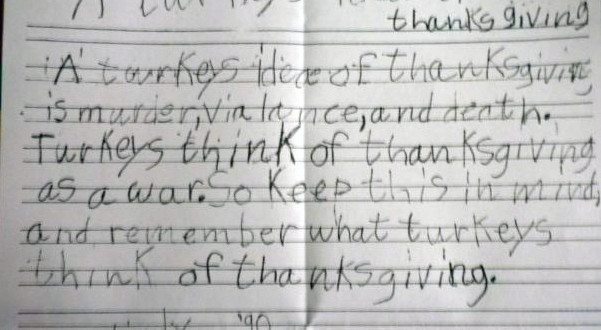 A turkeys
thanksgiving
A turkeys idea of thanksgiving
is murder, vialance, and death.
Turkeys think of thanksgiving
as a war. So keep this in mind,
and remember what turkeys
think of thanksgiving.
'90